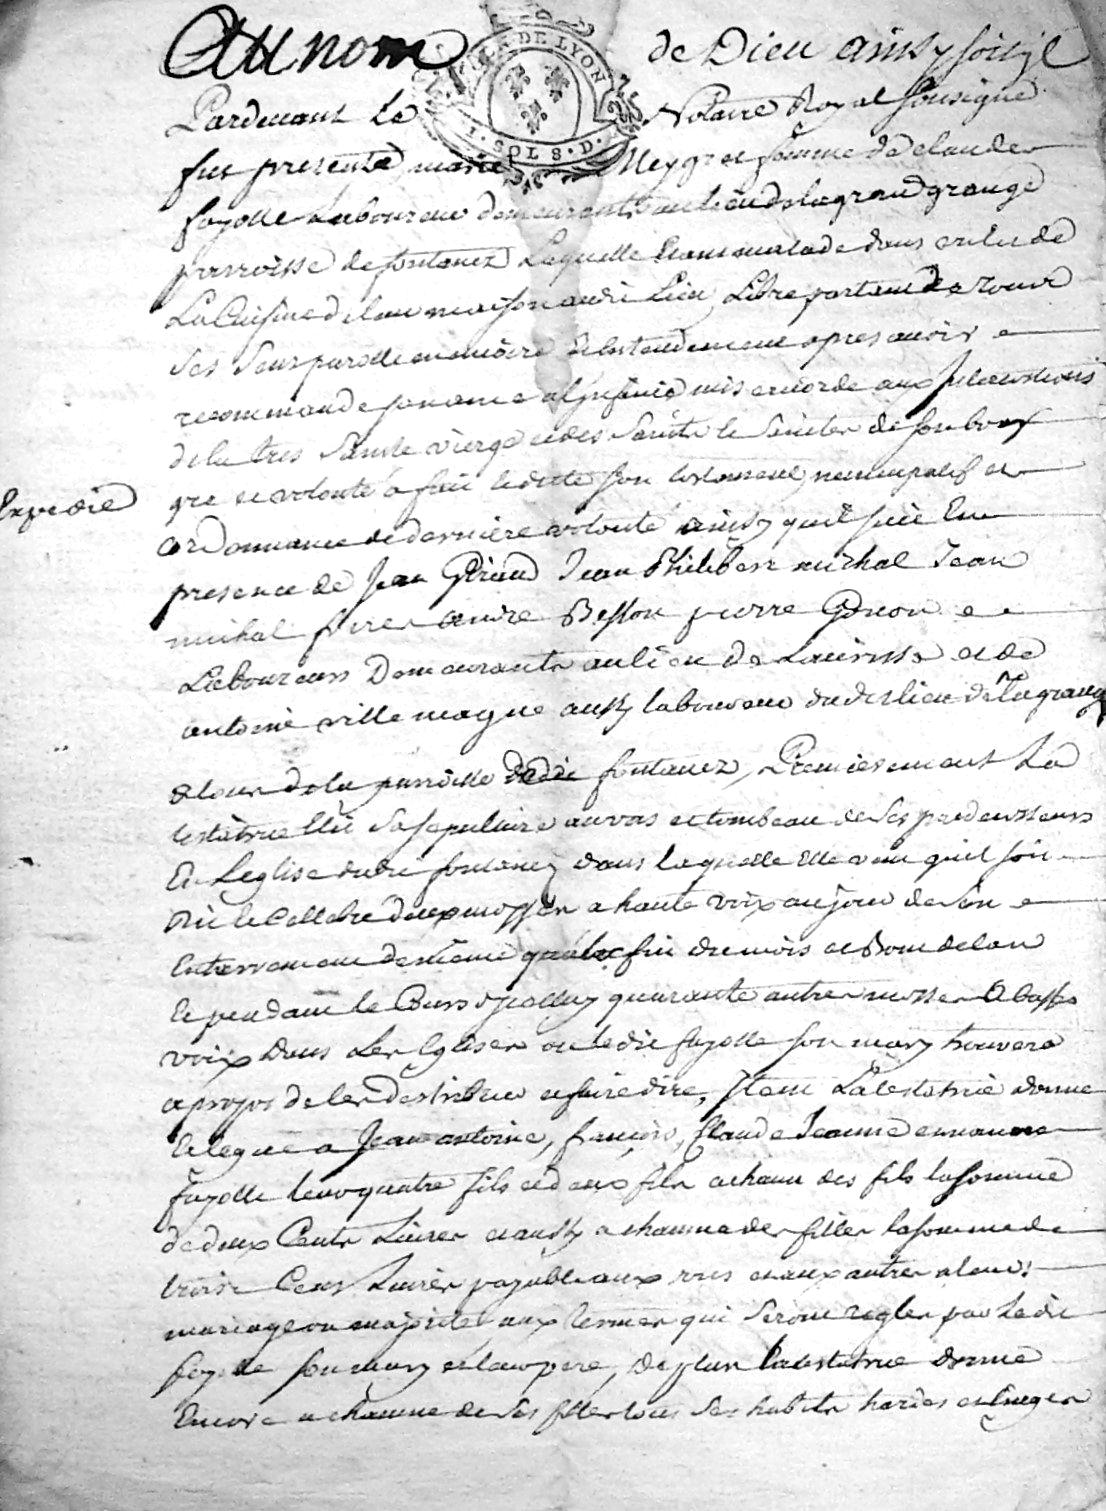 Au nom de Dieu ainsy soit jl
GEN. DE LYON
1 SOL 8. D.
Pardevant Le Notaire Royal soussigné
fut presente marie Meygret femme de claude
fayolle Laboureur demeurante au lieu de la grand grange
parroisse de fontanez Laquelle Etant malade dans un lit de
La Cuisine de leur maison audit Lieu Libre portant de tour
ses sens parolle memoire et Entendement apres avoir
recommande son ame a l'jnfinie misericorde aux jntercessions
de la tres Sainte vierge et des Saints le Sinites de son bon
Expedié
gré et volonté a fait et dicté son testament nuncupatif et
ordonnance de derniere volonté ainsy quil suit En
presence de Jean Giraud Jean Philibert michal Jean
michal frere andre Besson pierre Guion
Laboureurs Demeurants au lieu de Lavirisse et de
antoine villemagne aussy laboureur dudit lieu de la grange
et tous de la parroisse dudit fontanez, Premierement La
testatrice Elit sa sepulture au vas et tombeau de ses predecesseurs
En Leglise dudit fontanez dans laquelle Elle veut quil soit
Dit et Cellebre deux messes a haute voix au jour de son
Enterrement de meme fin du mois et Bout de lan
Et pendant le Cours d'jcelluy quarante autres messes a basse
voix dans Les Eglises ou ledit fayolle son mary trouvera
a propos de les destribuer et faire dire, jtem La testatrice donne
Et legue a Jean antoine, françois, Claude Jeanne et marie
fayolle ses quatre fils et deux filles a chacun des fils la somme
de deux Cents Livres et aussy a chacune des filles la somme de
trois Cens Livres payable aux uns et aux autres a leur
mariage ou majorité aux termes qui seront regles par ledit
fayolle son mary et leur pere, de plus la testatrice donne
Encore a chacune de ses filles tous ses habits hardes et linges